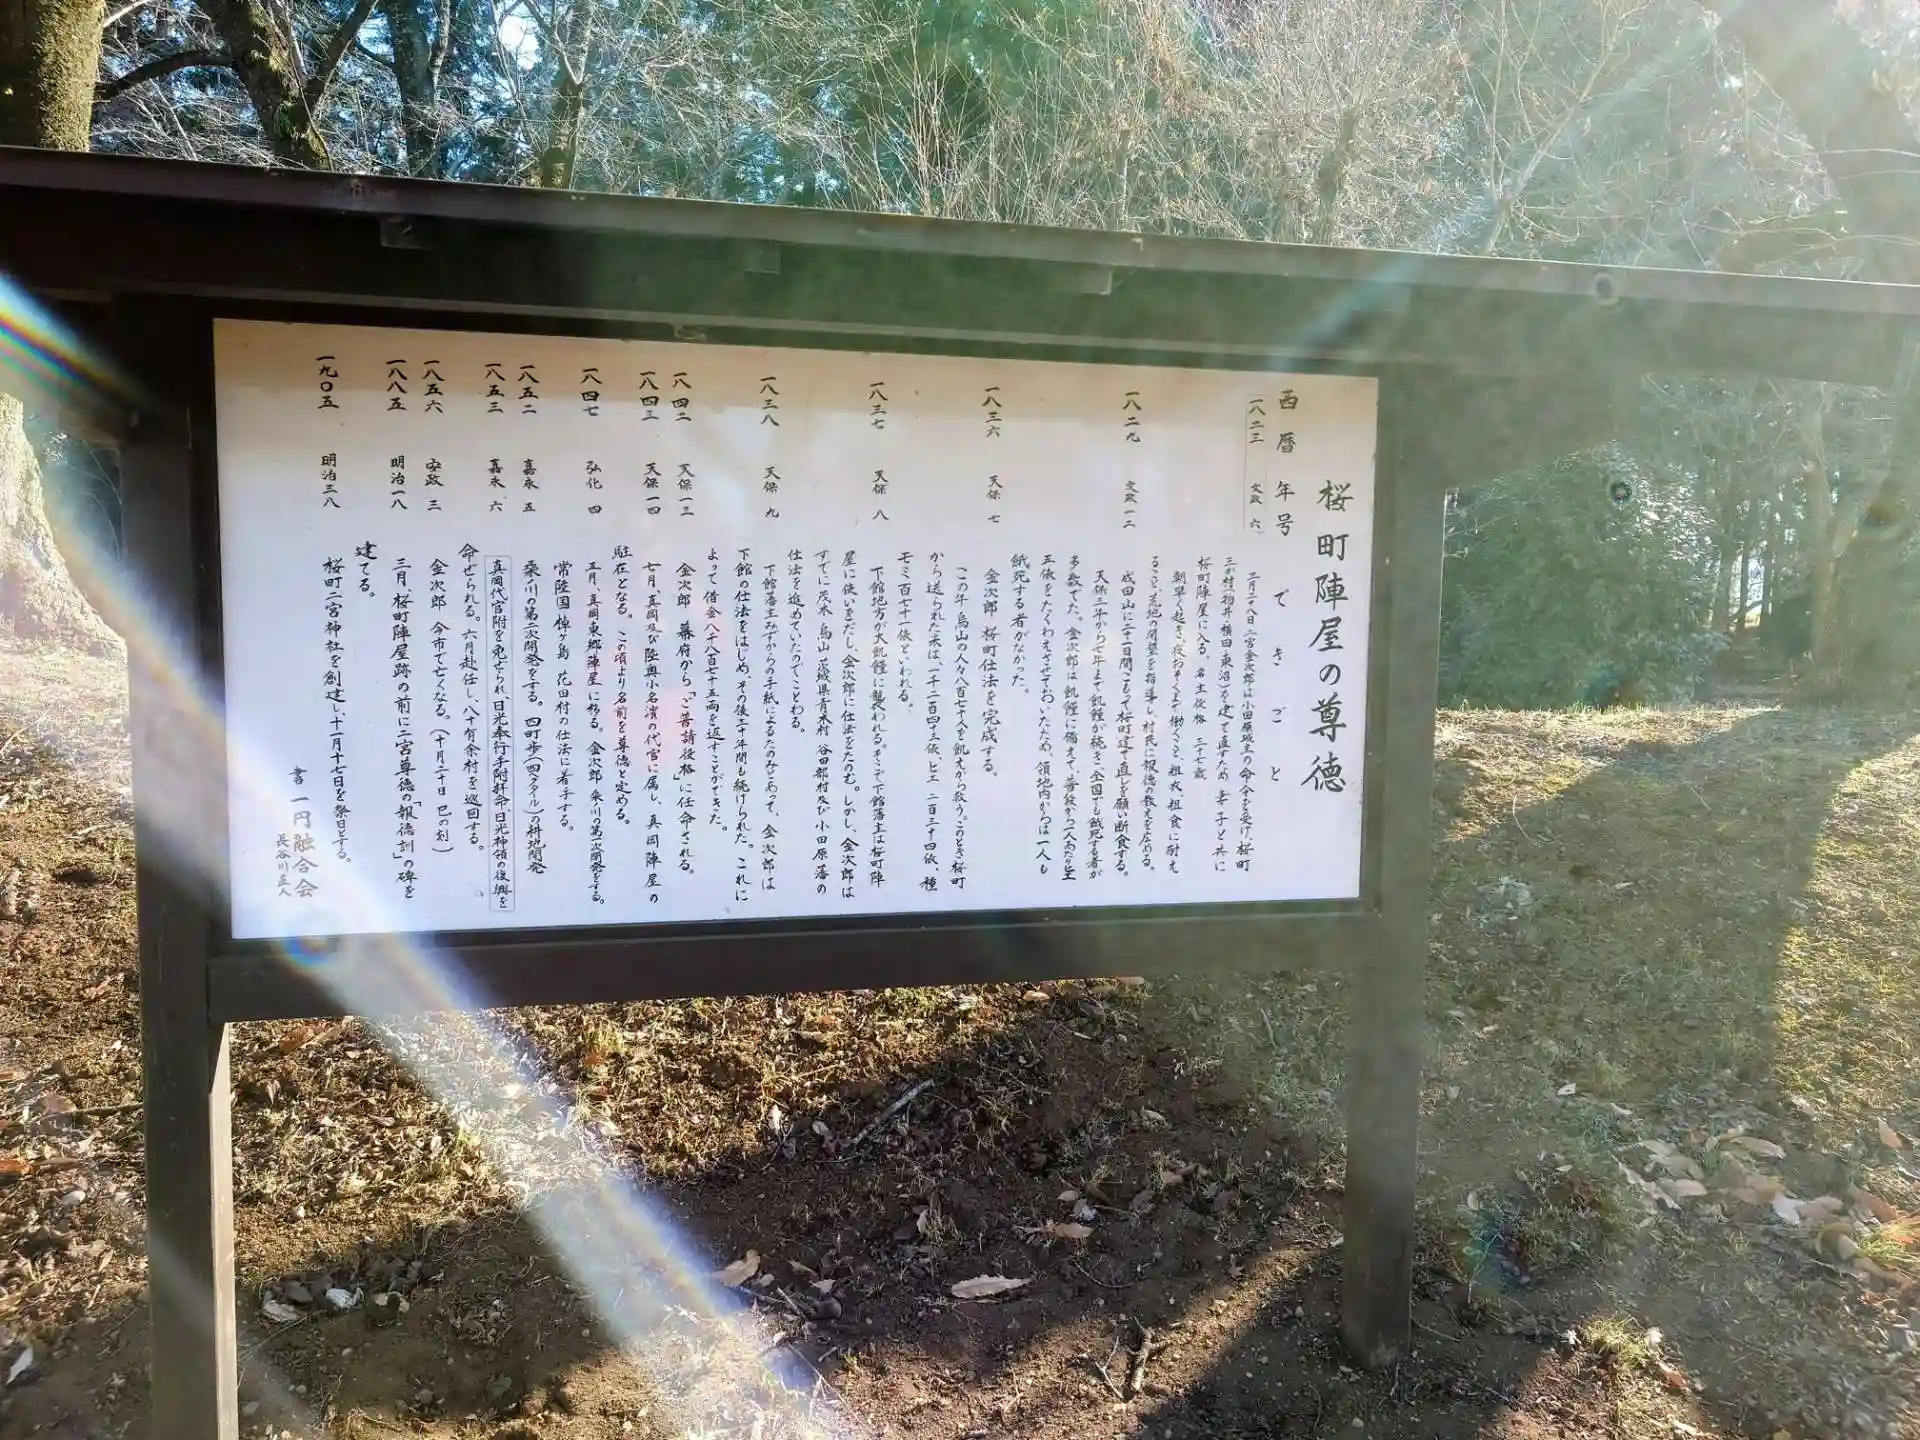 桜町陣屋の尊徳
西暦 年号 できごと
一八二三 文政 六 三月二十八日二宮金次郎は小田原城主の命令を受け、桜町
三か村(物井・横田・東沼)を建て直すため 妻子と共に
桜町陣屋に入る。名主役格 三十七歳
朝早く起き、夜おそくまで働くこと、粗衣、粗食に耐え
ること、荒地の開墾を指導し、村民に報徳の教えを広める。
一八二九 文政一二 成田山に二十一日間こもって桜町建て直しを願い断食する。
天保三年から七年まで飢饉が続き、全国でも餓死する者が
多数でた。金次郎は飢饉に備えて、普段から一人あたり
五俵をたくわえさせておいたため、領地内からは一人も
餓死する者がなかった。
一八三六 天保 七 金次郎 桜町仕法を完成する。
この年 烏山の人々八百七十人を飢えから救う。このとき桜町
から送られた米は、一千二百四十三俵、ヒエ 二百三十四俵、種
モミ百七十一俵といわれる。
一八三七 天保 八 下館地方が大飢饉に襲われる。そこで下館藩主は桜町陣
屋に使いをだし、金次郎に仕法をたのむ。しかし、金次郎は
すでに茂木・烏山・茨城県青木村 谷田部村及び小田原藩の
仕法を進めていたのでことわる。
一八三八 天保 九 下館藩主みずからの手紙によるたのみとあって、金次郎は
下館の仕法をはじめ、その後二十年間も続けられた。これに
よって借金八千八百七十五両を返すことができた。
一八四二 天保一三 金次郎 幕府から「ご普請役格」に任命される。
一八四三 天保一四 七月、真岡及び陸奥小名濱の代官に属し、真岡陣屋の
駐在となる。この頃より名前を尊徳と定める。
一八四七 弘化 四 五月、真岡東郷陣屋に移る。金次郎 桑ノ川の第一次開発をする。
常陸国 棹ヶ島 花田村の仕法に着手する。
一八五二 嘉永 五 桑ノ川の第二次開発をする。四町歩(四ヘクタール)の耕地開発
一八五三 嘉永 六 真岡代官附を免ぜられ、日光奉行手附拝命、日光神領の復興を
命ぜられる。六月赴任し、八十有余村を巡回する。
一八五六 安政 三 金次郎 今市で亡くなる。(十月二十日 巳の刻)
一八八五 明治一八 三月、桜町陣屋跡の前に二宮尊徳の「報徳訓」の碑を
建てる。
一九〇五 明治三八 桜町二宮神社を創建し、十一月十七日を祭日とする。
書 一円融合会
長谷川直八